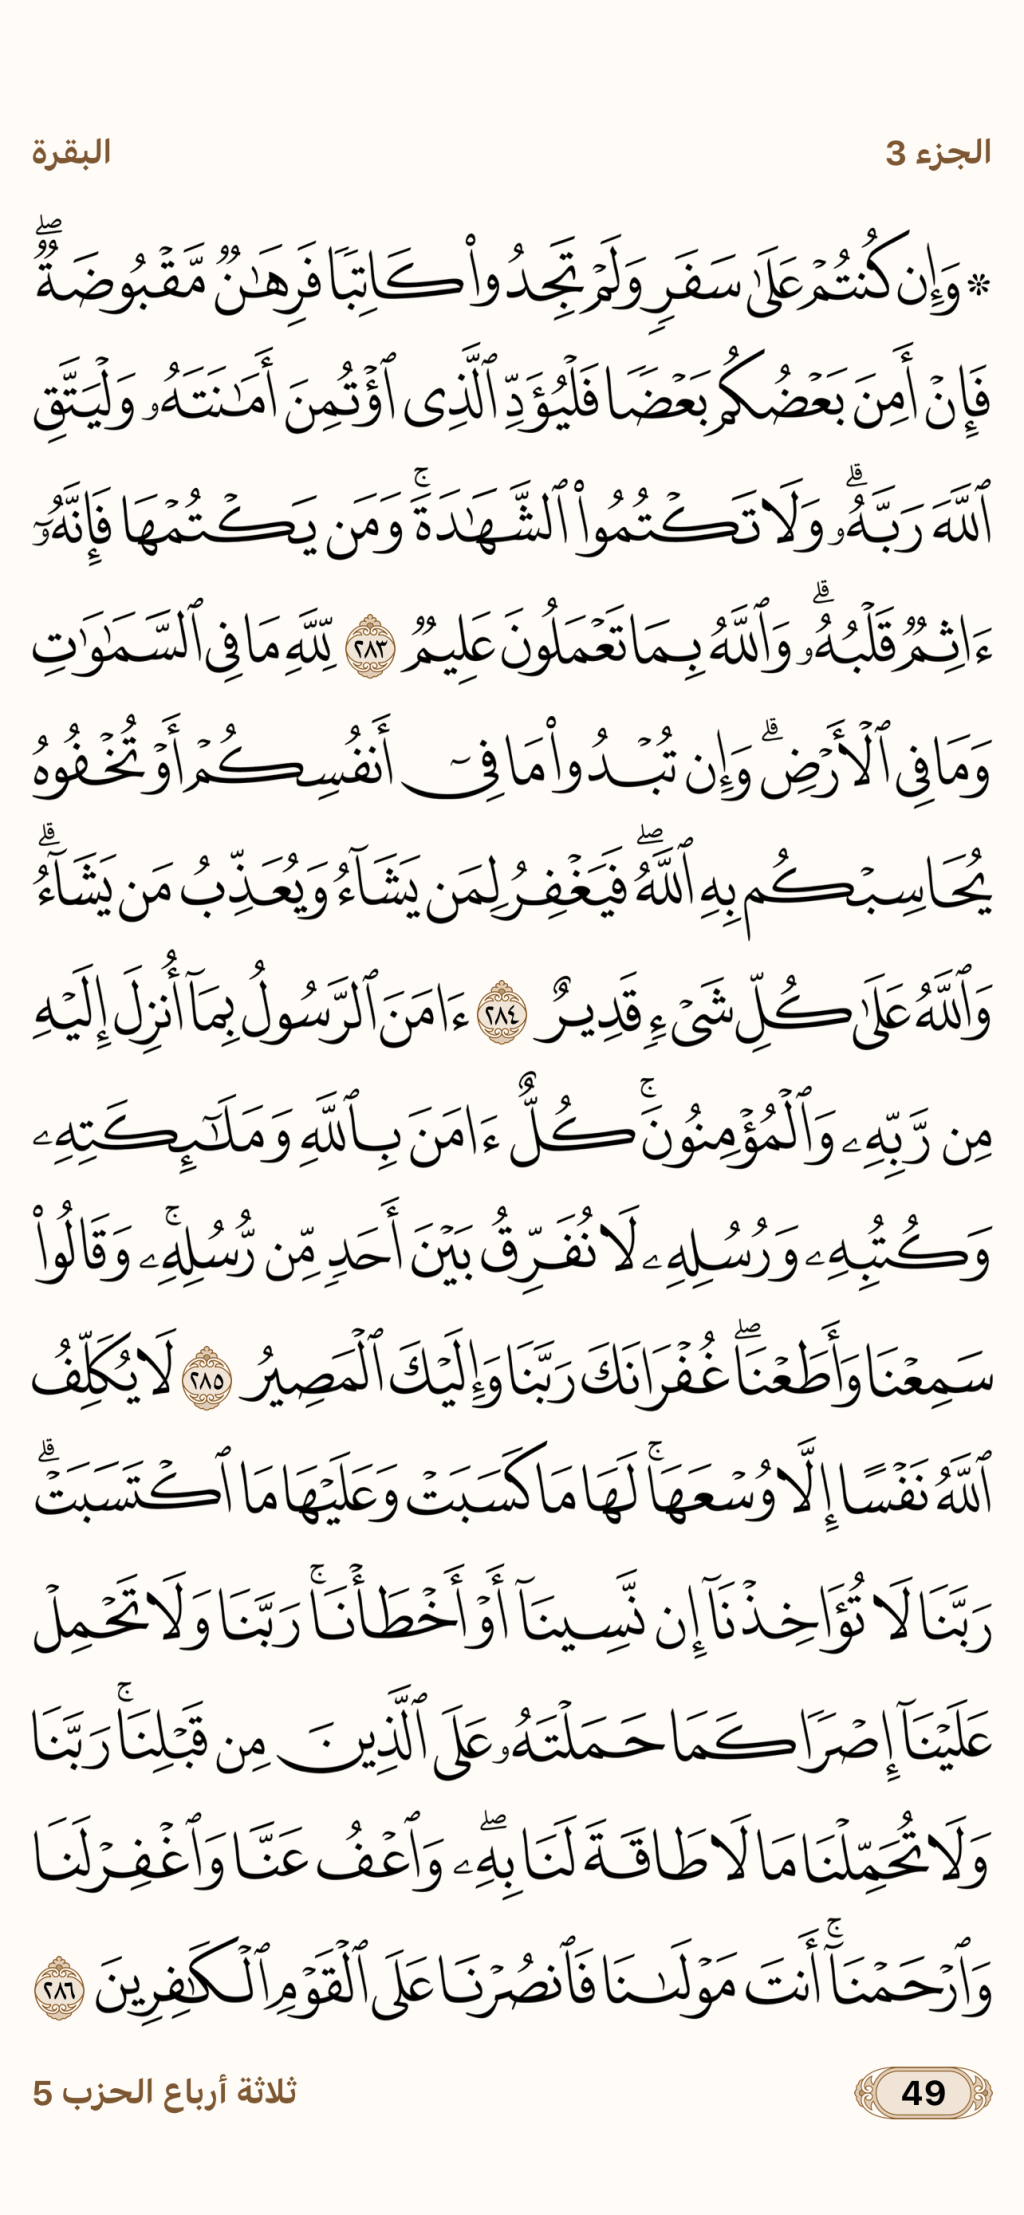 الجزء 3
البقرة
۞ وَإِن كُنتُمْ عَلَىٰ سَفَرٖ وَلَمْ تَجِدُواْ كَاتِبٗا فَرِهَٰنٞ مَّقْبُوضَةٞۖ
فَإِنْ أَمِنَ بَعْضُكُم بَعْضٗا فَلْيُؤَدِّ ٱلَّذِي ٱؤْتُمِنَ أَمَٰنَتَهُۥ وَلْيَتَّقِ
ٱللَّهَ رَبَّهُۥۗ وَلَا تَكْتُمُواْ ٱلشَّهَٰدَةَۚ وَمَن يَكْتُمْهَا فَإِنَّهُۥٓ
ءَاثِمٞ قَلْبُهُۥۗ وَٱللَّهُ بِمَا تَعْمَلُونَ عَلِيمٞ ٢٨٣ لِّلَّهِ مَا فِي ٱلسَّمَٰوَٰتِ
وَمَا فِي ٱلْأَرْضِۗ وَإِن تُبْدُواْ مَا فِيٓ أَنفُسِكُمْ أَوْ تُخْفُوهُ
يُحَاسِبْكُم بِهِ ٱللَّهُۖ فَيَغْفِرُ لِمَن يَشَآءُ وَيُعَذِّبُ مَن يَشَآءُۗ
وَٱللَّهُ عَلَىٰ كُلِّ شَيْءٖ قَدِيرٌ ٢٨٤ ءَامَنَ ٱلرَّسُولُ بِمَآ أُنزِلَ إِلَيْهِ
مِن رَّبِّهِۦ وَٱلْمُؤْمِنُونَۚ كُلٌّ ءَامَنَ بِٱللَّهِ وَمَلَٰٓئِكَتِهِۦ
وَكُتُبِهِۦ وَرُسُلِهِۦ لَا نُفَرِّقُ بَيْنَ أَحَدٖ مِّن رُّسُلِهِۦۚ وَقَالُواْ
سَمِعْنَا وَأَطَعْنَاۖ غُفْرَانَكَ رَبَّنَا وَإِلَيْكَ ٱلْمَصِيرُ ٢٨٥ لَا يُكَلِّفُ
ٱللَّهُ نَفْسًا إِلَّا وُسْعَهَاۚ لَهَا مَا كَسَبَتْ وَعَلَيْهَا مَا ٱكْتَسَبَتْۗ
رَبَّنَا لَا تُؤَاخِذْنَآ إِن نَّسِينَآ أَوْ أَخْطَأْنَاۚ رَبَّنَا وَلَا تَحْمِلْ
عَلَيْنَآ إِصْرٗا كَمَا حَمَلْتَهُۥ عَلَى ٱلَّذِينَ مِن قَبْلِنَاۚ رَبَّنَا
وَلَا تُحَمِّلْنَا مَا لَا طَاقَةَ لَنَا بِهِۦۖ وَٱعْفُ عَنَّا وَٱغْفِرْ لَنَا
وَٱرْحَمْنَآۚ أَنتَ مَوْلَىٰنَا فَٱنصُرْنَا عَلَى ٱلْقَوْمِ ٱلْكَٰفِرِينَ ٢٨٦
49
ثلاثة أرباع الحزب 5